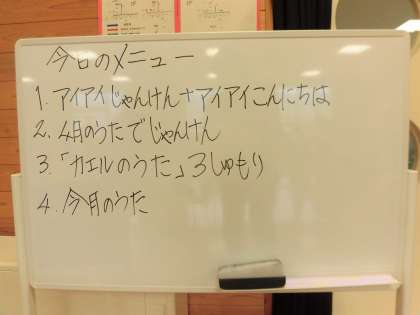 今日のメニュー
1. アイアイじゃんけん+アイアイこんにちは
2. 4月のうたでじゃんけん
3. 「カエルのうた」3しゅもり
4. 今月のうた